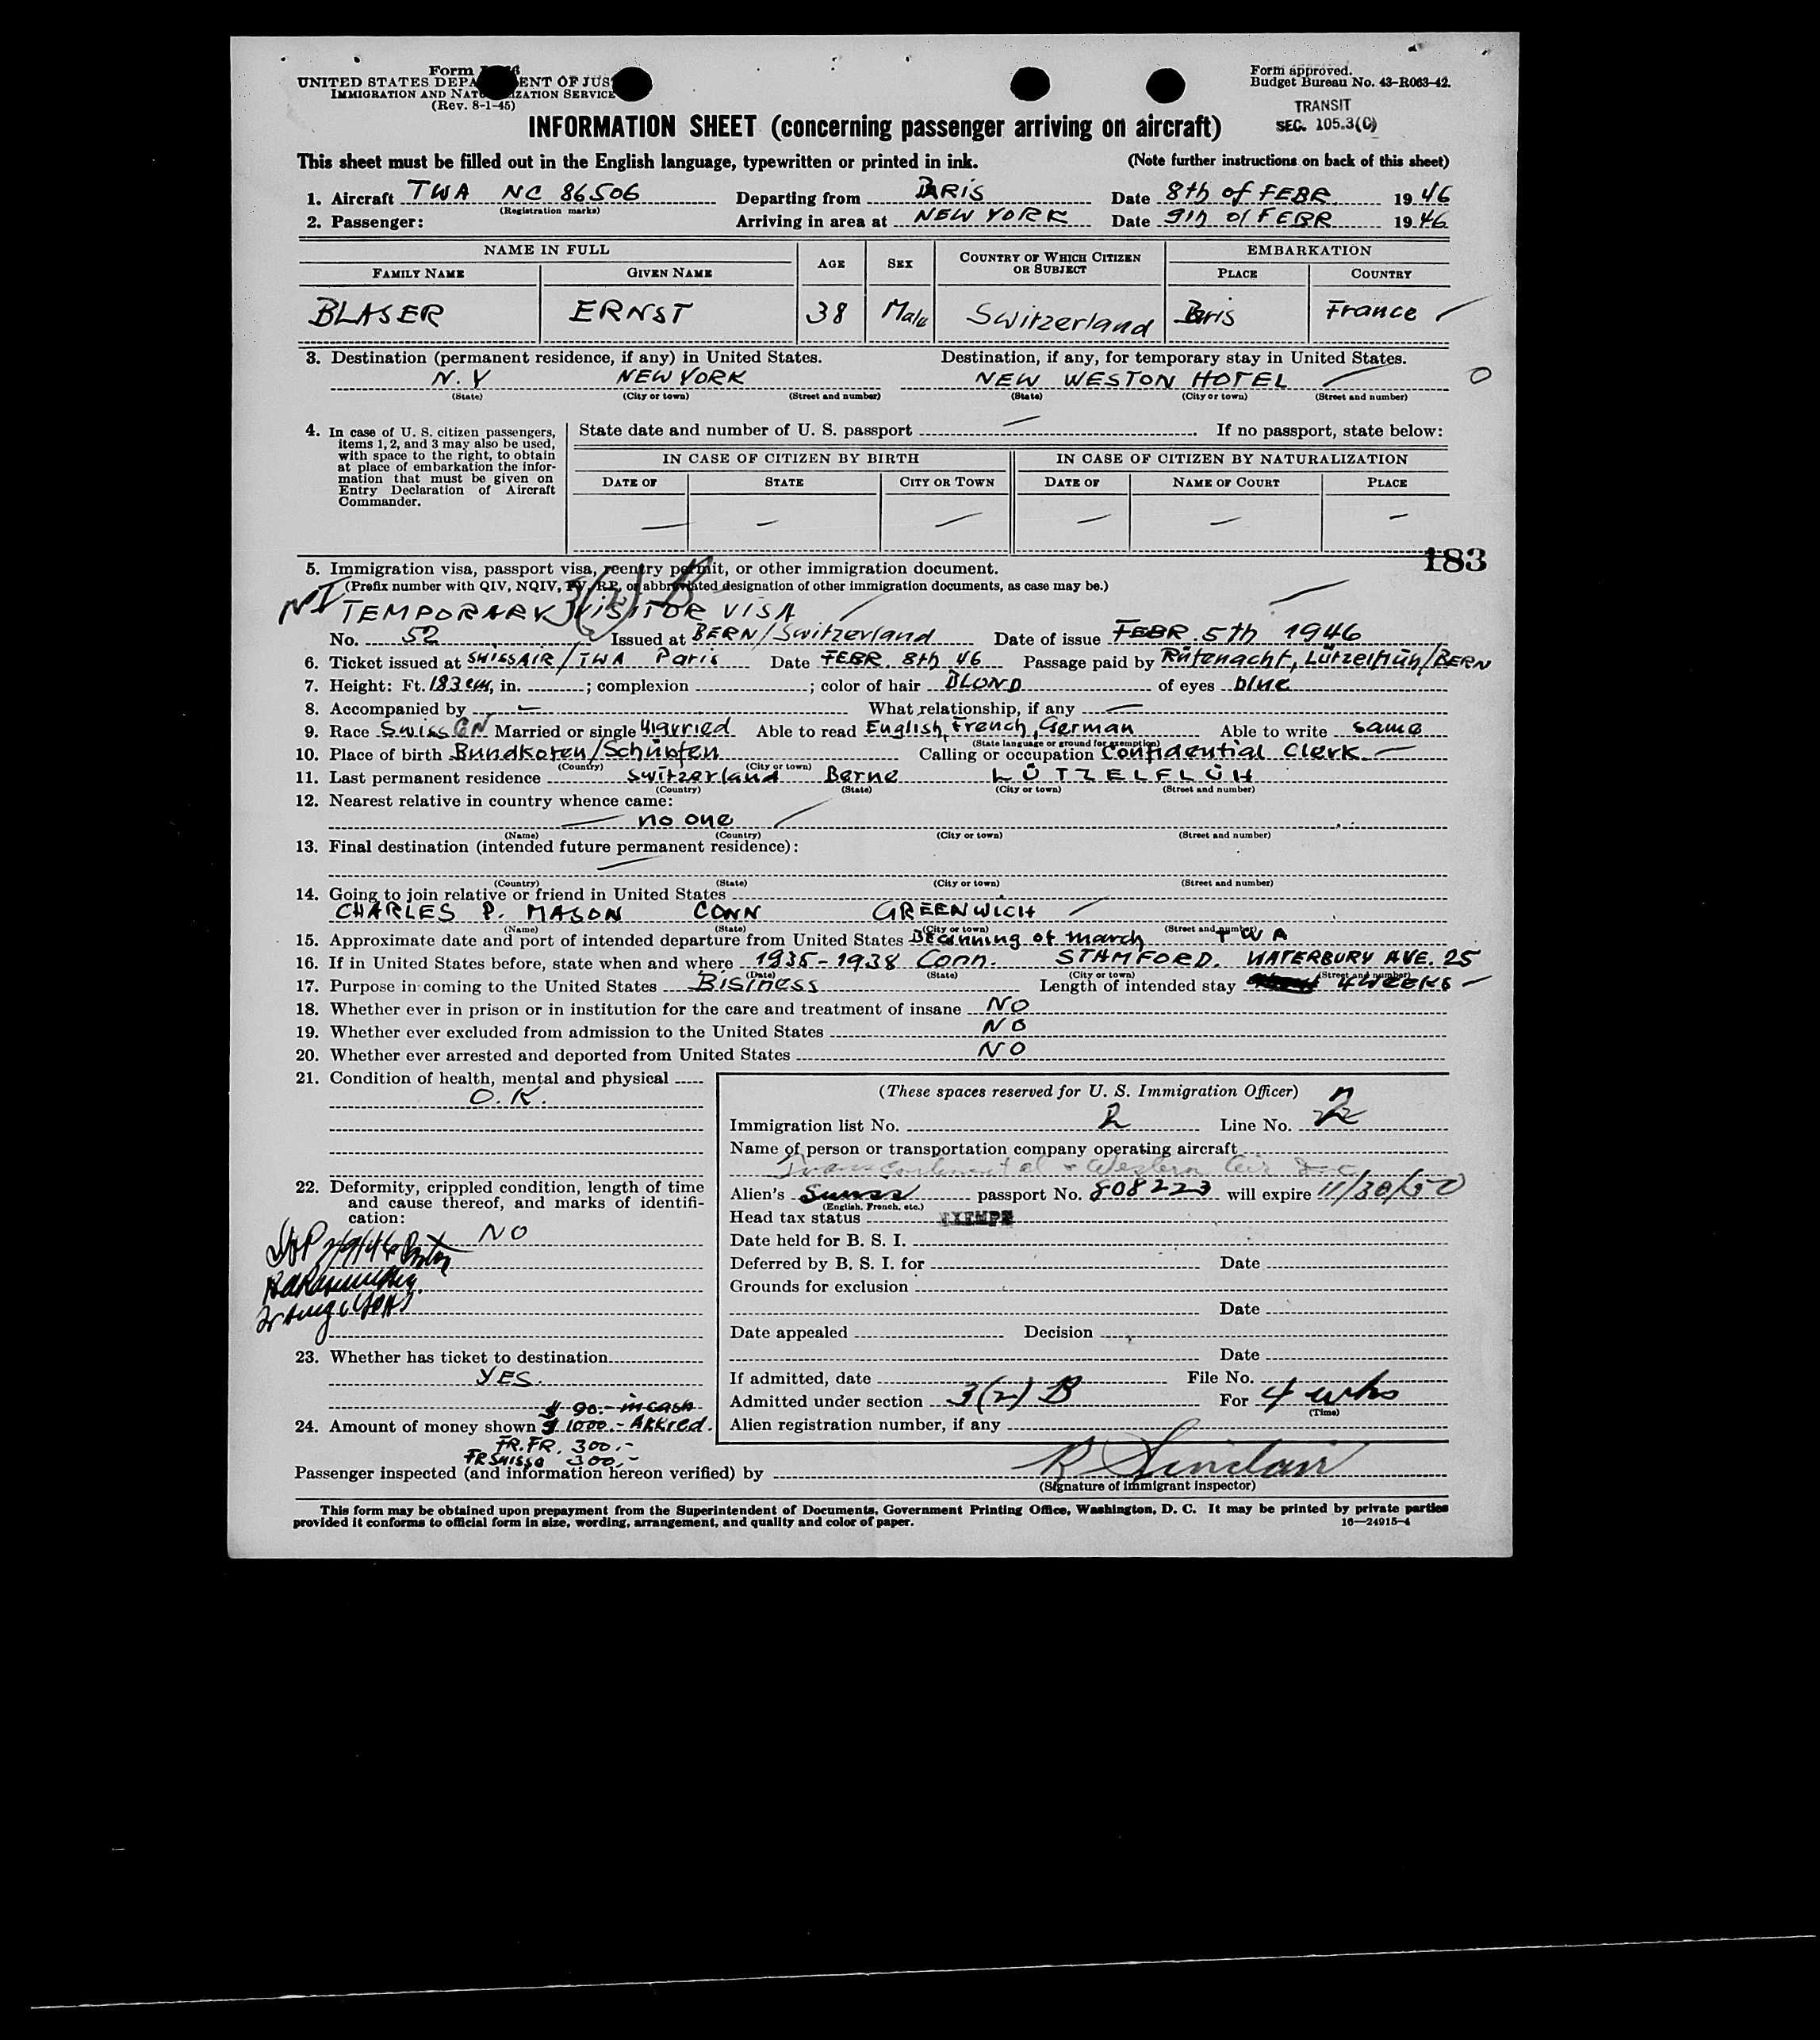 Form
UNITED STATES DEPA ENT OF JUS
IMMIGRATION AND NATU IZATION SERVICE
(Rev. 8-1-45)
Form approved.
Budget Bureau No. 43-R063-42.
TRANSIT
SEC. 105.3(C)
INFORMATION SHEET (concerning passenger arriving on aircraft)
This sheet must be filled out in the English language, typewritten or printed in ink. (Note further instructions on back of this sheet)
1. Aircraft TWA NC 86506 Departing from PARIS Date 8th of FEBR. 1946
(Registration marks)
2. Passenger: Arriving in area at NEW YORK Date 9th of FEBR 1946
NAME IN FULL EMBARKATION
FAMILY NAME GIVEN NAME AGE SEX COUNTRY OF WHICH CITIZEN OR SUBJECT PLACE COUNTRY
BLASER ERNST 38 Male Switzerland Paris France
3. Destination (permanent residence, if any) in United States. Destination, if any, for temporary stay in United States.
N.Y NEW YORK NEW WESTON HOTEL
(State) (City or town) (Street and number) (State) (City or town) (Street and number)
4. In case of U. S. citizen passengers, items 1, 2, and 3 may also be used, with space to the right, to obtain at place of embarkation the information that must be given on Entry Declaration of Aircraft Commander.
State date and number of U. S. passport — If no passport, state below:
IN CASE OF CITIZEN BY BIRTH IN CASE OF CITIZEN BY NATURALIZATION
DATE OF STATE CITY OR TOWN DATE OF NAME OF COURT PLACE
— — — — — —
183
5. Immigration visa, passport visa, reentry permit, or other immigration document.
(Prefix number with QIV, NQIV, PV, RP, or abbreviated designation of other immigration documents, as case may be.)
3(2) B
NI TEMPORARY VISITOR VISA
No. 52 Issued at BERN/Switzerland Date of issue FEBR. 5th 1946
6. Ticket issued at SWISSAIR/TWA Paris Date FEBR. 8th 46 Passage paid by Rüfenacht, Lützelflüh/BERN
7. Height: Ft. 183 cm, in. ; complexion ; color of hair BLOND of eyes blue
8. Accompanied by — What relationship, if any —
9. Race Swiss GN Married or single Married Able to read English, French, German Able to write same
(State language or ground for exemption)
10. Place of birth Bundkofen/Schüpfen Calling or occupation Confidential Clerk
(Country) (City or town)
11. Last permanent residence Switzerland Berne LÜTZELFLÜH
(Country) (State) (City or town) (Street and number)
12. Nearest relative in country whence came:
— no one
(Name) (Country) (City or town) (Street and number)
13. Final destination (intended future permanent residence):
—
(Country) (State) (City or town) (Street and number)
14. Going to join relative or friend in United States
CHARLES P. MASON CONN GREENWICH
(Name) (State) (City or town) (Street and number)
15. Approximate date and port of intended departure from United States Beginning of march TWA
16. If in United States before, state when and where 1935-1938 Conn. STAMFORD. WATERBURY AVE. 25
(Date) (State) (City or town) (Street and number)
17. Purpose in coming to the United States Bisiness Length of intended stay 4 WEEKS
18. Whether ever in prison or in institution for the care and treatment of insane NO
19. Whether ever excluded from admission to the United States NO
20. Whether ever arrested and deported from United States NO
21. Condition of health, mental and physical
O.K.
22. Deformity, crippled condition, length of time and cause thereof, and marks of identification:
NO
23. Whether has ticket to destination
YES.
$ 90.- in cash
24. Amount of money shown $ 1000.- Akkred.
FR.FR. 300.-
FR SUISSO 300.-
(These spaces reserved for U. S. Immigration Officer)
Immigration list No. 2 Line No. 2
Name of person or transportation company operating aircraft
Transcontinental & Western Air Inc
Alien's Swiss passport No. 808223 will expire 11/30/50
(English, French, etc.)
Head tax status EXEMPT
Date held for B. S. I.
Deferred by B. S. I. for Date
Grounds for exclusion
Date
Date appealed Decision
Date
If admitted, date File No.
Admitted under section 3(2) B For 4 wks
(Time)
Alien registration number, if any
Passenger inspected (and information hereon verified) by R Sinclair
(Signature of immigrant inspector)
This form may be obtained upon prepayment from the Superintendent of Documents, Government Printing Office, Washington, D. C. It may be printed by private parties
provided it conforms to official form in size, wording, arrangement, and quality and color of paper. 16—24915-4